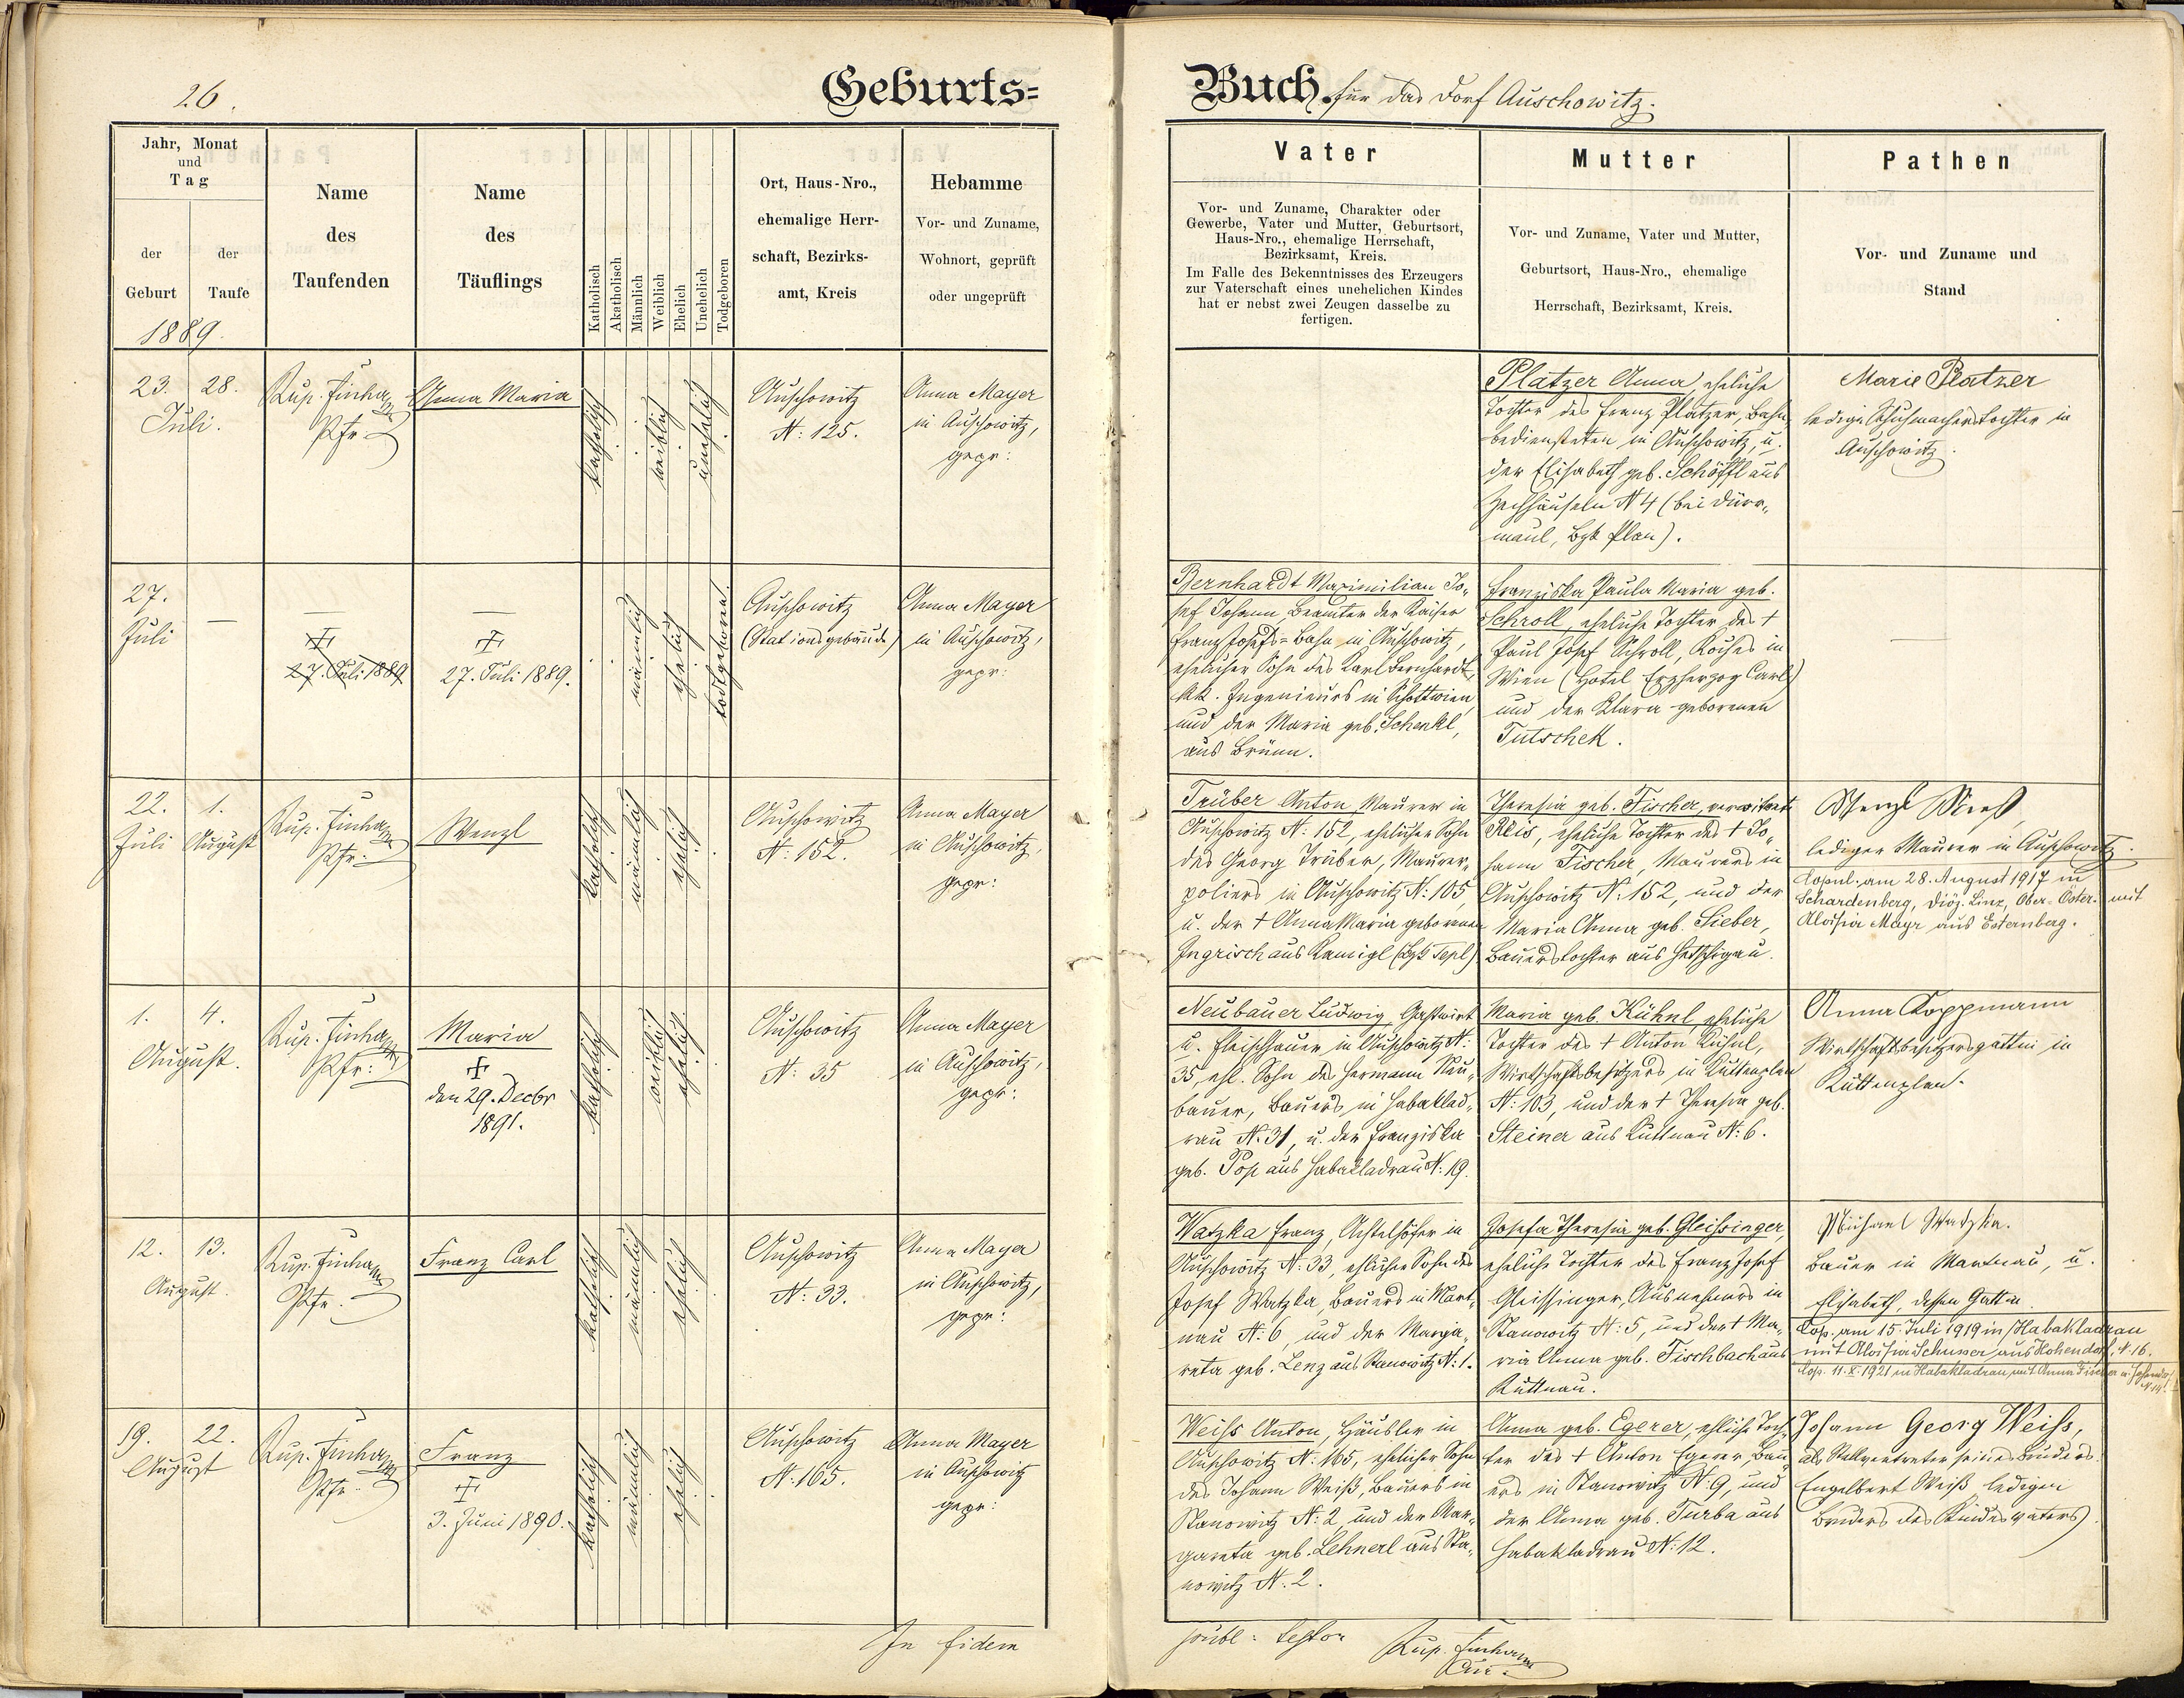 26.
Geburts=
Buch für das Dorf Auschowitz.
Jahr, Monat
und
Tag
der
Geburt
der
Taufe
1889.
Name
des
Taufenden
Name
des
Täuflings
Katholisch
Akatholisch
Männlich
Weiblich
Ehelich
Unehelich
Todgeboren
Ort, Haus-Nro.,
ehemalige Herr-
schaft, Bezirks-
amt, Kreis
Hebamme
Vor- und Zuname,
Wohnort, geprüft
oder ungeprüft
Vater
Vor- und Zuname, Charakter oder
Gewerbe, Vater und Mutter, Geburtsort,
Haus-Nro., ehemalige Herrschaft,
Bezirksamt, Kreis.
Im Falle des Bekenntnisses des Erzeugers
zur Vaterschaft eines unehelichen Kindes
hat er nebst zwei Zeugen dasselbe zu
fertigen.
Mutter
Vor- und Zuname, Vater und Mutter,
Geburtsort, Haus-Nro., ehemalige
Herrschaft, Bezirksamt, Kreis.
Pathen
Vor- und Zuname und
Stand
23. 28.
Juli.
Rup.
Pfr.
Anna Maria
katholisch
weiblich
unehelich
Auschowitz
N: 125.
Anna Mayer
in Auschowitz,
gepr:
Platzer Anna, eheliche
Tochter des Franz Platzer, Bahn-
bediensteten in Auschowitz, u.
der Elisabeth geb. Schöffl aus
Zechhäuseln N 4 (bei Dürr-
maul, Bzk Plan).
Marie Platzer
ledige Schuhmacherstochter in
Auschowitz.
27.
Juli
—
—
27. Juli 1889
—
27. Juli 1889.
männlich
ehelich
todtgeboren.
Auschowitz
(Stationsgebäude)
Anna Mayer
in Auschowitz,
gepr:
Bernhardt Maximilian Jo-
sef Johann, Beamter der Kaiser
Franz Josefs=Bahn in Auschowitz,
ehelicher Sohn des Karl Bernhardt,
kk. Ingenieurs in Schottwien
und der Maria geb. Schenkl,
aus Brünn.
Franziska Paula Maria geb.
Schroll, eheliche Tochter des †
Paul Josef Schroll, Koches in
Wien (Hotel Erzherzog Carl)
und der Klara geborenen
Tutschek.
22. 1.
Juli August
Rup.
Pfr:
Wenzl
katholisch
männlich
ehelich
Auschowitz
N: 152.
Anna Mayer
in Auschowitz,
gepr:
Trüber Anton, Maurer in
Auschowitz N: 152, ehelicher Sohn
des Georg Trüber, Maurer-
poliers in Auschowitz N: 105,
u. der † Anna Maria geborenen
Ingrisch aus Ramigl (Bzk Tepl)
Theresia geb. Fischer, verwitwete
Reis, eheliche Tochter des † Jo-
hann Fischer, Maurers in
Auschowitz N: 152, und der
Maria Anna geb. Sieber,
Bauerstochter aus Hetschigau.
Wenzl
lediger Maurer in Auschowitz.
Copul. am 28. August 1917 in
Schardenberg, Diöz. Linz, Ober-Öster. mit
Aloisia Mayr aus Esternberg.
1. 4.
August.
Rup.
Pfr:
Maria
den 29. Decbr
1891.
katholisch
weiblich
ehelich
Auschowitz
N: 35
Anna Mayer
in Auschowitz,
gepr:
Neubauer Ludwig, Gastwirt
u. Fleischhauer in Auschowitz N:
35, ehl. Sohn des Hermann Neu-
bauer, Bauers in Habaklad-
rau N: 31, u. der Franziska
geb. Pop aus Habakladrau N: 19.
Maria geb. Kühnl, eheliche
Tochter des † Anton Kühnl,
Wirtschaftsbesitzers in Kuttenplan
N: 103, und der † Theresia geb.
Steiner aus Kuttnau N: 6.
Anna Koppmann
Wirtschaftsbesitzersgattin in
Kuttenplan.
12. 13.
August.
Rup.
Pfr.
Franz Carl
katholisch
männlich
ehelich
Auschowitz
N: 33.
Anna Mayer
in Auschowitz,
gepr:
Watzka Franz, Achtelhöfer in
Auschowitz N: 33, ehlicher Sohn des
Josef Watzka, Bauers in Mart-
nau N: 6, und der Marga-
reta geb. Lenz aus Stanowitz N: 1.
Josefa Theresia geb. Gleissinger,
eheliche Tochter des Franz Josef
Gleissinger, Ausnehmers in
Stanowitz N: 5, und der † Ma-
ria Anna geb. Fischbach aus
Kuttnau.
Michael Watzka.
Bauer in Martnau, u.
Elisabeth, dessen Gattin
Cop. am 15. Juli 1919 in Habakladrau
mit Aloisia Schusser aus Hohendorf, N. 16.
Cop. 11.X.1921 in Habakladrau mit Anna Fischer
19. 22.
August
Rup.
Pfr.
Franz
3. Juni 1890.
katholisch
männlich
ehelich
Auschowitz
N: 165.
Anna Mayer
in Auschowitz
gepr:
Weiss Anton, Häusler in
Auschowitz N: 165, ehelicher Sohn
des Johann Weiß, Bauers in
Stanowitz N: 2 und der Mar-
gareta geb. Lehnerl aus Sta-
nowitz N. 2.
Anna geb. Egerer, ehliche Toch-
ter des † Anton Egerer, Bau-
ers in Stanowitz N: 9, und
der Anna geb. Turba aus
Habakladrau N: 12.
Johann Georg Weiss,
als Stellvertreter seines Bruders
Engelbert Weiß ledigen
Bruders des Kindesvaters)
In fidem
Rup.